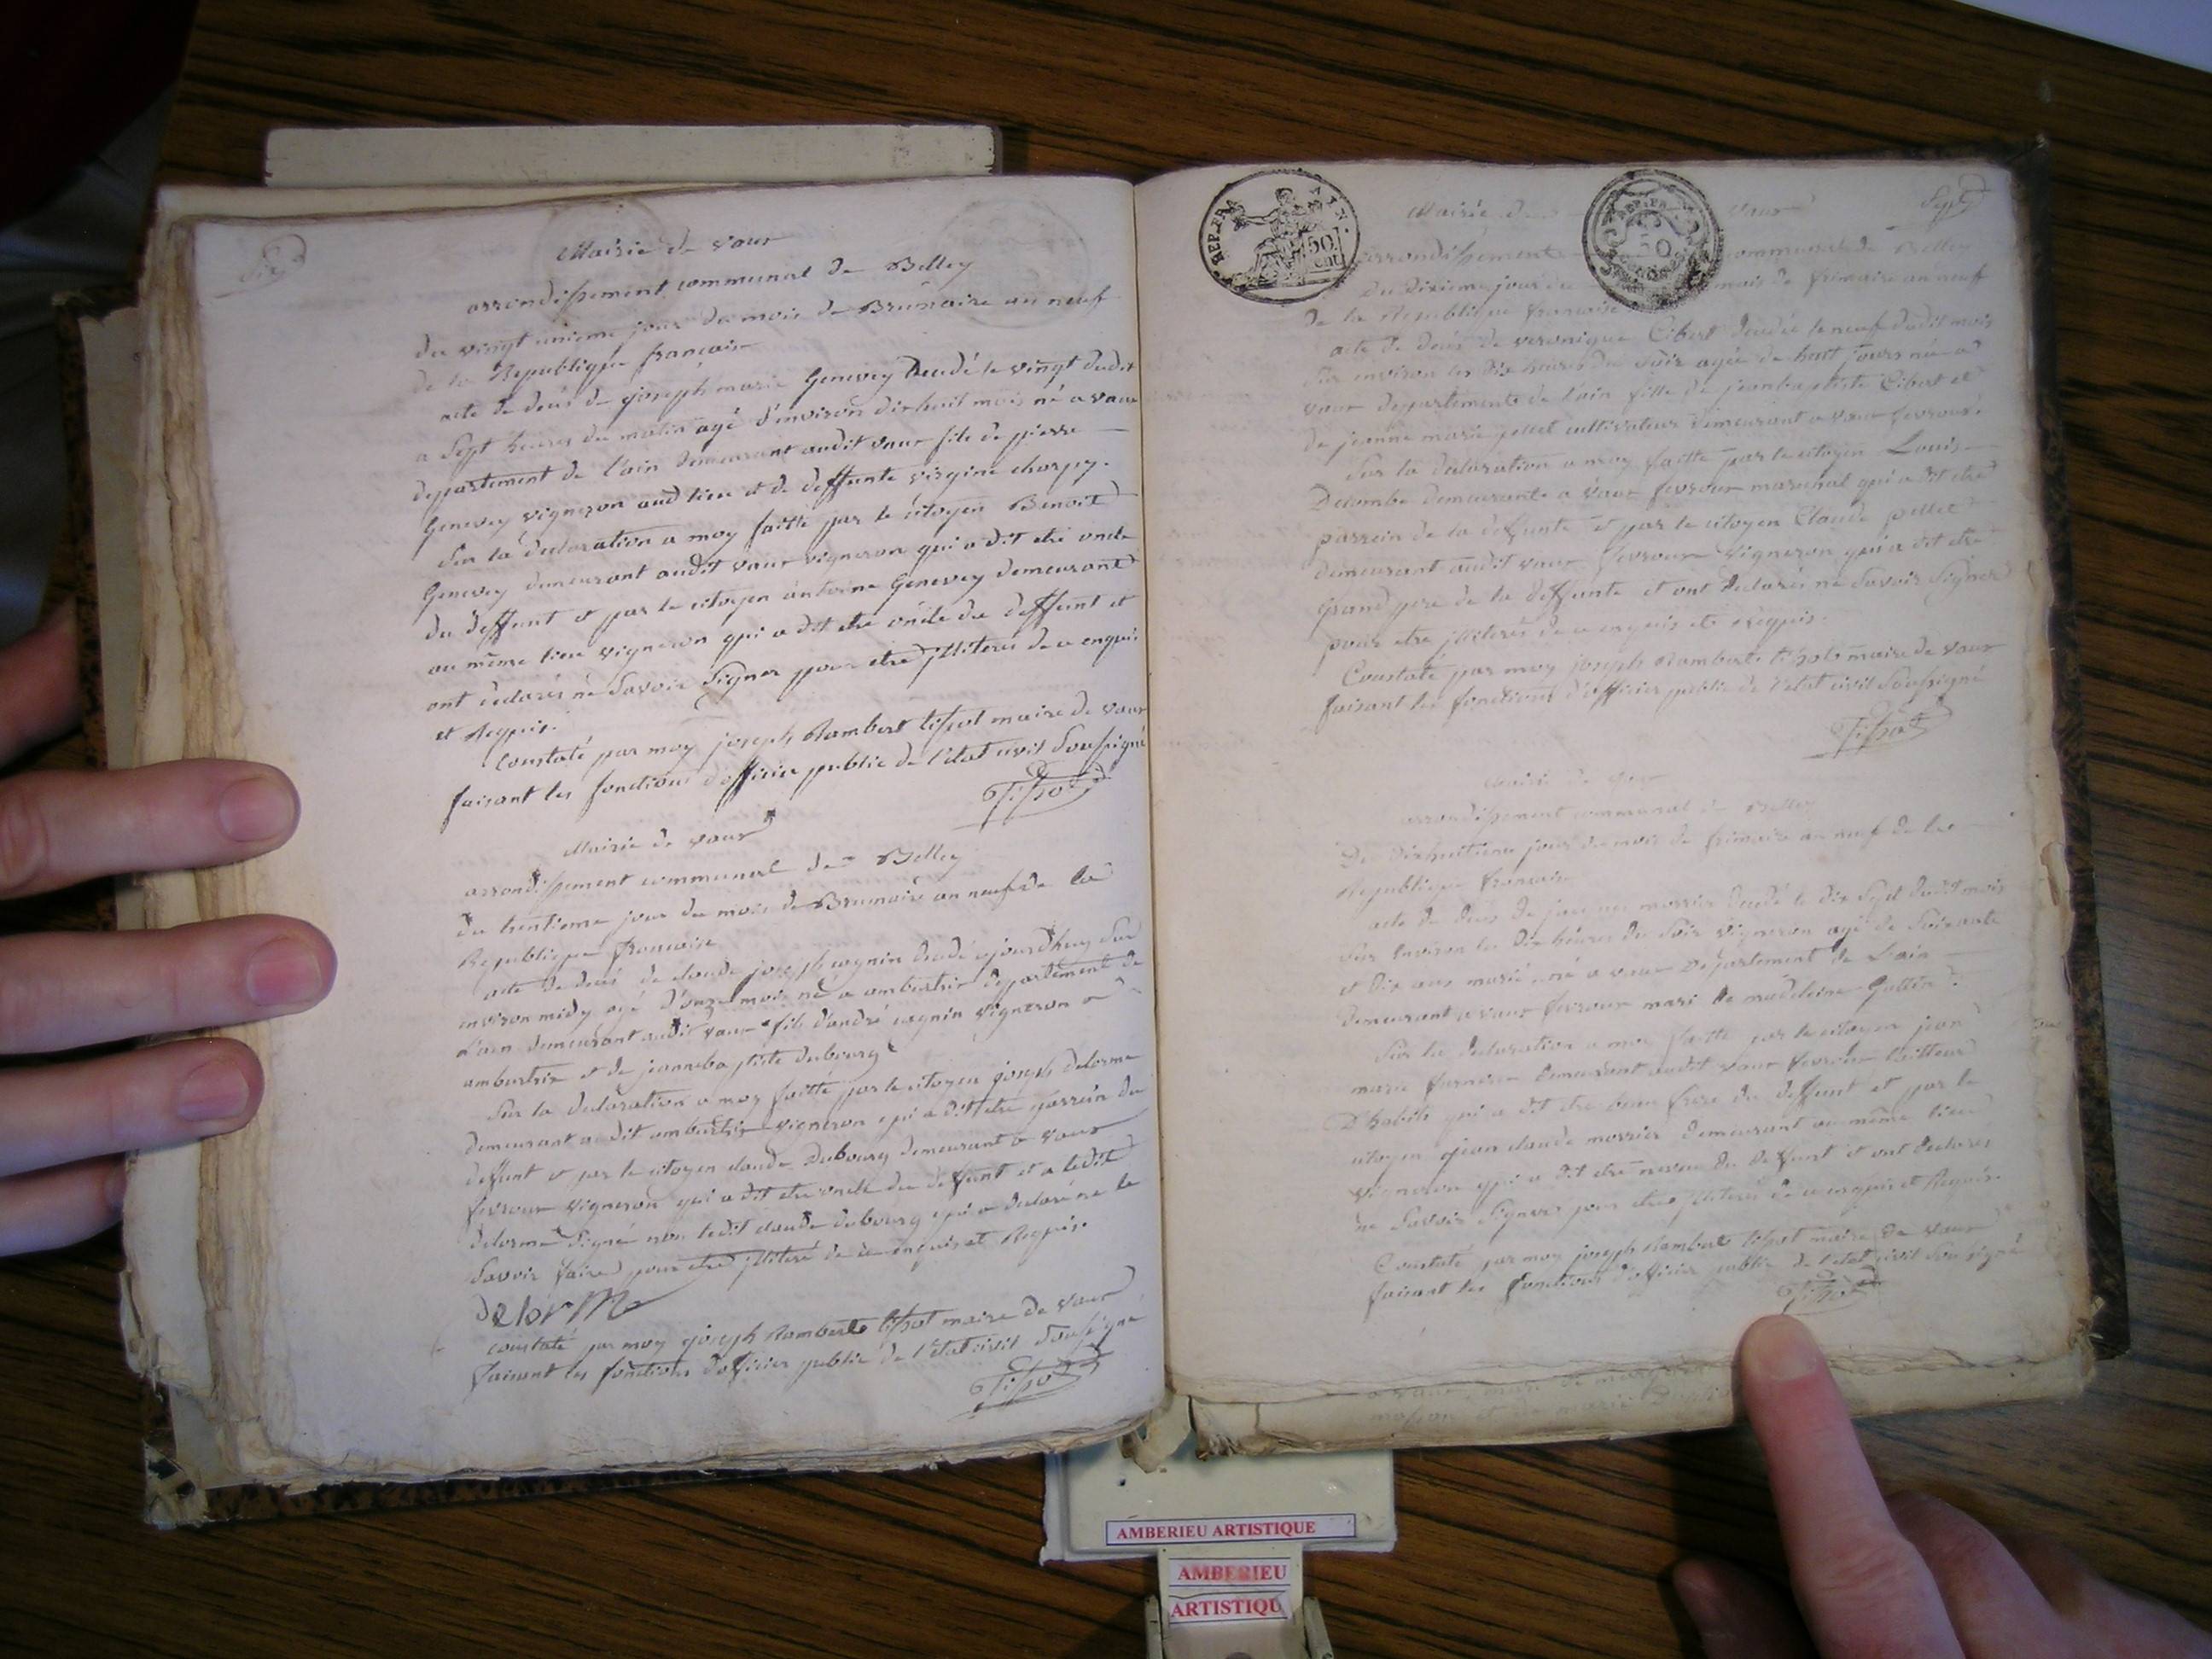 Six
Mairie de vaux
arrondissement communal de Belley
du vingt unieme jour du mois de Brumaire an neuf
de la Republique francaise
acte de deués de joseph marie Genevey decedé le vingt dudit
a sept heures du matin agé d'environ dix huit mois né a vaux
departement de l'ain demeurant audit vaux fils de pierre
Genevey vigneron aud lieu et de deffunte virgine charpy.
Sur la declaration a moy faitte par le citoyen Benoit
Genevey demeurant audit vaux vigneron qui a dit etre oncle
du deffunt et par le citoyen antoine Genevey demeurant
au même lieu vigneron qui a dit etre oncle du deffunt et
ont declarés ne savoir signer pour etre jlliterés de ce enquis
et Requis.
Constaté par moy joseph Rambert tissot maire de vaux
faisant les fonctions d'officier public de l'etat civil soussigné
Tissot
Mairie de vaux
arrondissement communal de Belley
du trentieme jour du mois de Brumaire an neuf de la
Republique francaise
acte de deués de claude joseph cognin decedé ajourdhuy sur
environ midy agé d'onze mois né a ambutrix departement de
l'ain demeurant audit vaux fils d'andré cognin vigneron a
ambutrix et de jeannebaptiste dubourg
Sur la declaration a moy faitte par le citoyen joseph delorme
demeurant audit ambutrix vigneron qui a dit etre parrein du
deffunt et par le citoyen claude dubourg demeurant a vaux
fevroux vigneron qui a dit etre oncle du deffunt et a ledit
delorme signé non ledit claude dubourg qui a declaré ne le
savoir faire pour etre jlliteré de ce enquis et Requis.
delorme
constaté par moy joseph Rambert tissot maire de vaux
faisant les fonctions d'officier public de l'etat civil soussigné
Tissot
Sept
Mairie de vaux
REP. FRA
50 cent
REP. FRA
50
arrondissement communal de Belley
Du Dixieme jour du mois de frimaire an neuf
de la Republique francaise
acte de deués de veronique Cibert decedée le neuf dudit mois
sur environ les dix heures du soir agée de huit jours née a
vaux departement de l'ain fille de jeanbaptiste Cibert et
de jeanne marie pellet cultivateurs demeurant a vaux fevroux.
Sur la declaration a moy faitte par le citoyen Louis
Decombe demeurant a vaux fevroux marechal qui a dit etre
parrein de la deffunte et par le citoyen Claude pellet
demeurant audit vaux fevroux vigneron qui a dit etre
grand pere de la deffunte et ont declarés ne savoir signer
pour etre jlliterés de ce enquis et Requis.
Constaté par moy joseph Rambert tissot maire de vaux
faisant les fonctions d'officier public de l'etat civil soussigné
Tissot
Mairie de vaux
arrondissement communal de Belley
Du dixhuitieme jour du mois de frimaire an neuf de la
Republique francaise
acte de deués de jacques morrier decedé le dix sept dudit mois
sur environ les dix heures du soir vigneron agé de soixante
et dix ans marié né a vaux departement de l'ain
demeurant a vaux fevroux mari de madeleine Guttin.
Sur la declaration a moy faitte par le citoyen jean
marie furnion demeurant audit vaux fevroux tailleur
D'habits qui a dit etre beau frere du deffunt et par le
citoyen jean claude morrier demeurant au même lieu
vigneron qui a dit etre neveu du deffunt et ont declarés
ne savoir signer pour etre jlliterés de ce enquis et Requis.
Constaté par moy joseph Rambert tissot maire de vaux
faisant les fonctions d'officier public de l'etat civil soussigné
Tissot
AMBERIEU ARTISTIQUE
AMBERIEU
ARTISTIQU